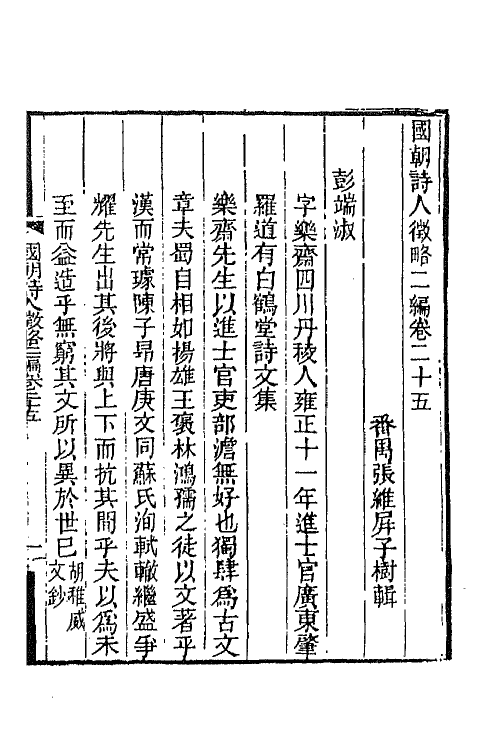 國朝詩人徵略二編卷二十五
番禺張維屏子樹輯
彭端淑
字樂齋四川丹稜人雍正十一年進士官廣東肇
羅道有白鶴堂詩文集
樂齋先生以進士官吏部澹無好也獨肆爲古文
章夫蜀自相如揚雄王褒林鴻孺之徒以文著乎
漢而常璩陳子昻唐庚文同蘇氏洵軾轍繼盛爭
耀先生出其後將與上下而抗其間乎夫以爲未
至而益造乎無窮其文所以異於世已
胡雅威
文鈔
國朝詩人徵略二編卷二十五
一